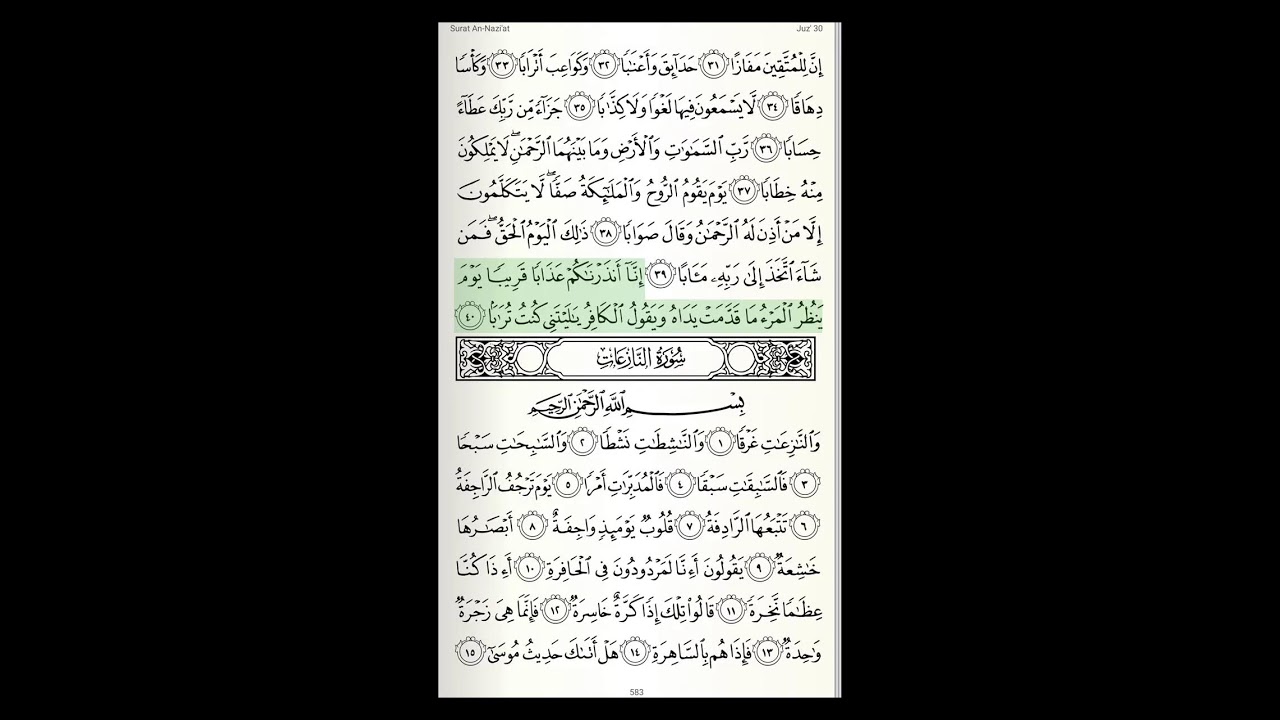 Surat An-Nazi'at Juz' 30
إِنَّ لِلْمُتَّقِينَ مَفَازًا ٣١ حَدَآئِقَ وَأَعْنَٰبًا ٣٢ وَكَوَاعِبَ أَتْرَابًا ٣٣ وَكَأْسًا
دِهَاقًا ٣٤ لَّا يَسْمَعُونَ فِيهَا لَغْوًا وَلَا كِذَّٰبًا ٣٥ جَزَآءً مِّن رَّبِّكَ عَطَآءً
حِسَابًا ٣٦ رَّبِّ ٱلسَّمَٰوَٰتِ وَٱلْأَرْضِ وَمَا بَيْنَهُمَا ٱلرَّحْمَٰنِ ۖ لَا يَمْلِكُونَ
مِنْهُ خِطَابًا ٣٧ يَوْمَ يَقُومُ ٱلرُّوحُ وَٱلْمَلَٰٓئِكَةُ صَفًّا ۖ لَّا يَتَكَلَّمُونَ
إِلَّا مَنْ أَذِنَ لَهُ ٱلرَّحْمَٰنُ وَقَالَ صَوَابًا ٣٨ ذَٰلِكَ ٱلْيَوْمُ ٱلْحَقُّ ۖ فَمَن
شَآءَ ٱتَّخَذَ إِلَىٰ رَبِّهِۦ مَـَٔابًا ٣٩ إِنَّآ أَنذَرْنَٰكُمْ عَذَابًا قَرِيبًا يَوْمَ
يَنظُرُ ٱلْمَرْءُ مَا قَدَّمَتْ يَدَاهُ وَيَقُولُ ٱلْكَافِرُ يَٰلَيْتَنِى كُنتُ تُرَٰبًۢا ٤٠
سُورَةُ النَّازِعَاتِ
بِسْمِ ٱللَّهِ ٱلرَّحْمَٰنِ ٱلرَّحِيمِ
وَٱلنَّٰزِعَٰتِ غَرْقًا ١ وَٱلنَّٰشِطَٰتِ نَشْطًا ٢ وَٱلسَّٰبِحَٰتِ سَبْحًا
٣ فَٱلسَّٰبِقَٰتِ سَبْقًا ٤ فَٱلْمُدَبِّرَٰتِ أَمْرًا ٥ يَوْمَ تَرْجُفُ ٱلرَّاجِفَةُ
٦ تَتْبَعُهَا ٱلرَّادِفَةُ ٧ قُلُوبٌ يَوْمَئِذٍ وَاجِفَةٌ ٨ أَبْصَٰرُهَا
خَٰشِعَةٌ ٩ يَقُولُونَ أَءِنَّا لَمَرْدُودُونَ فِى ٱلْحَافِرَةِ ١٠ أَءِذَا كُنَّا
عِظَٰمًا نَّخِرَةً ١١ قَالُوا۟ تِلْكَ إِذًا كَرَّةٌ خَاسِرَةٌ ١٢ فَإِنَّمَا هِىَ زَجْرَةٌ
وَٰحِدَةٌ ١٣ فَإِذَا هُم بِٱلسَّاهِرَةِ ١٤ هَلْ أَتَىٰكَ حَدِيثُ مُوسَىٰٓ ١٥
583